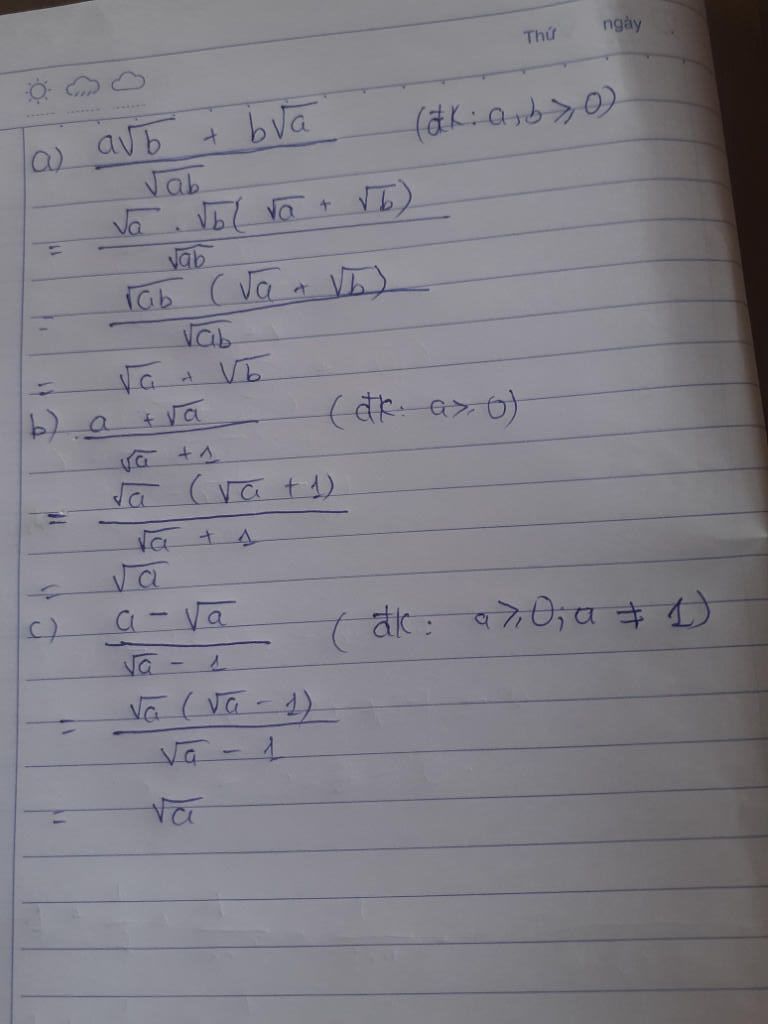 Thứ ngày
a) a√b + b√a / √ab (đk: a,b ≥ 0)
= √a . √b ( √a + √b) / √ab
= √ab ( √a + √b) / √ab
= √a + √b
b) a + √a / √a + 1 (đk: a ≥ 0)
= √a ( √a + 1) / √a + 1
= √a
c) a - √a / √a - 1 (đk: a ≥ 0; a ≠ 1)
= √a ( √a - 1) / √a - 1
= √a